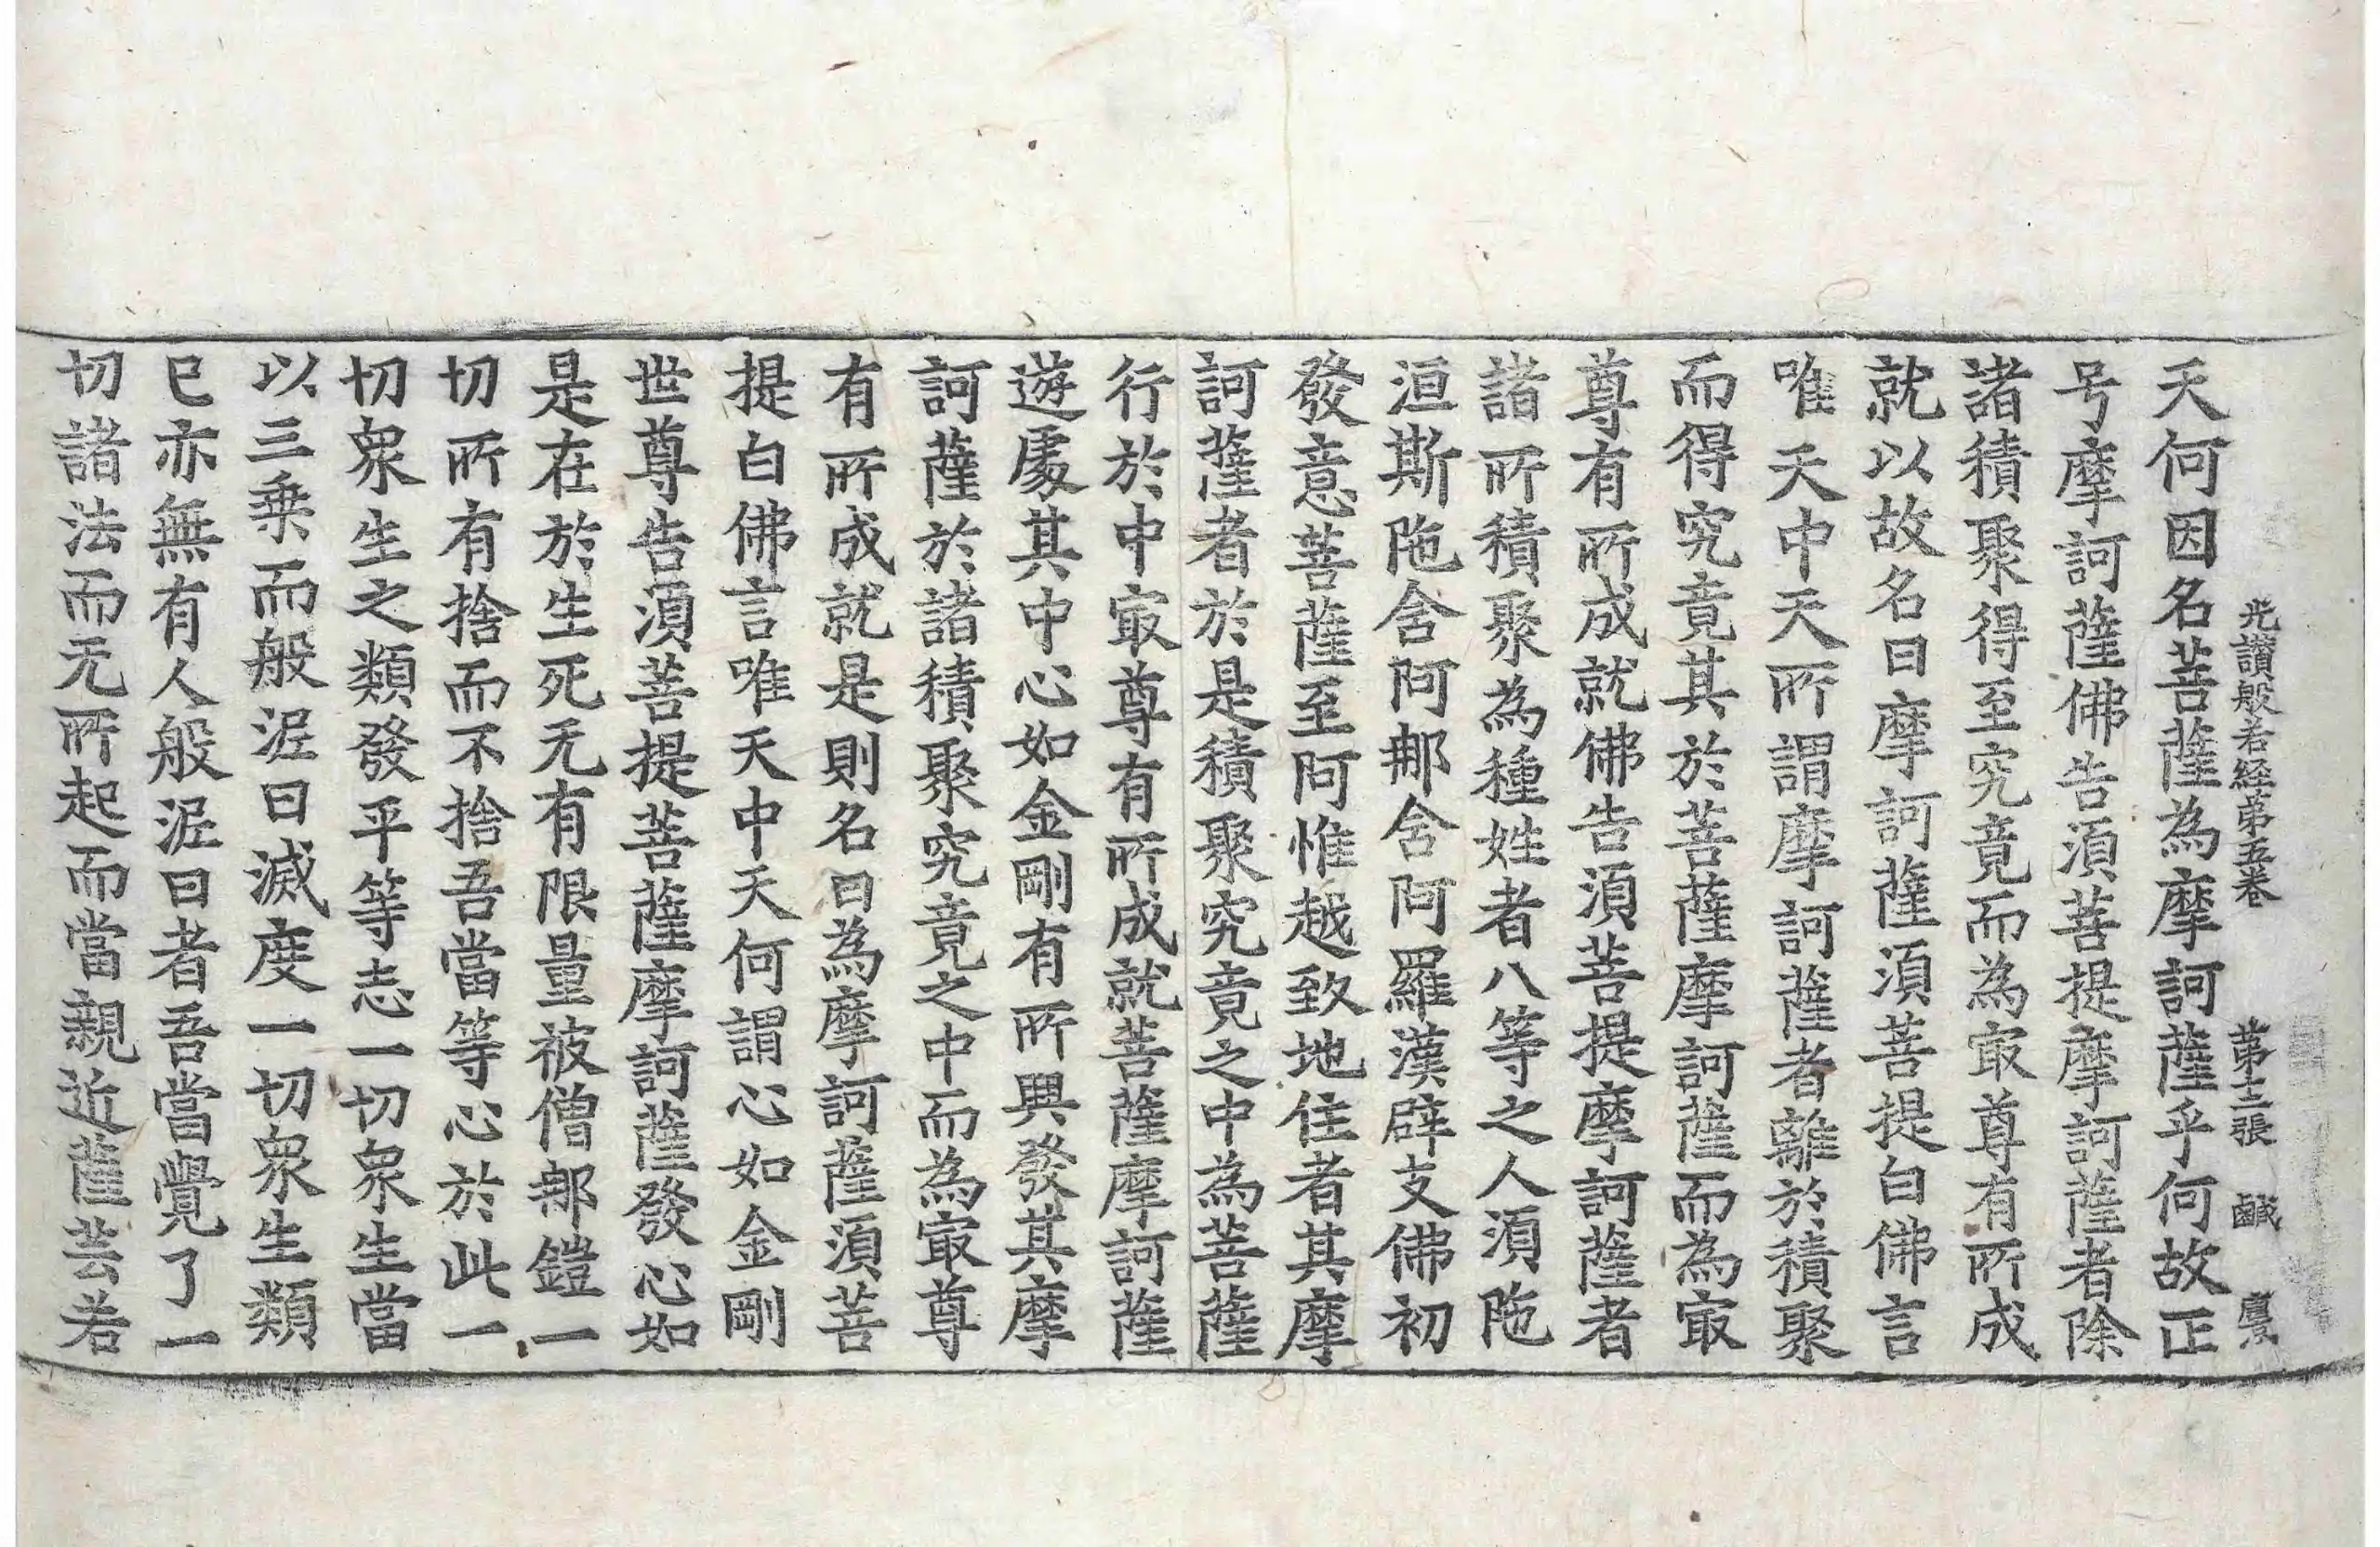 光讃般若経苐五卷　苐十二張　鹹　慶
天何因名菩薩為摩訶薩乎何故正
号摩訶薩佛告湏菩提摩訶薩者除
諸積聚得至究竟而為冣尊有所成
就以故名曰摩訶薩湏菩提白佛言
唯天中天所謂摩訶薩者離於積聚
而得究竟其於菩薩摩訶薩而為冣
尊有所成就佛告湏菩提摩訶薩者
諸所積聚為種姓者八等之人湏陁
洹斯陁含阿那含阿羅漢辟支佛初
發意菩薩至阿惟越致地住者其摩
訶薩者於是積聚究竟之中為菩薩
行於中冣尊有所成就菩薩摩訶薩
遊處其中心如金剛有所興發其摩
訶薩於諸積聚究竟之中而為冣尊
有所成就是則名曰為摩訶薩湏菩
提白佛言唯天中天何謂心如金剛
世尊告湏菩提菩薩摩訶薩發心如
是在於生死无有限量被僧那鎧一
切所有捨而不捨吾當等心於此一
切衆生之類發平等志一切衆生當
以三乗而般泥曰滅度一切衆生類
已亦無有人般泥曰者吾當覺了一
切諸法而无所起而當親近薩芸若